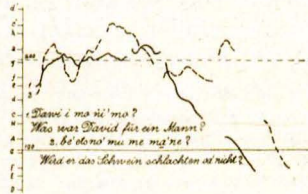 Dawi i mo ni' mo?
Was war David für ein Mann?
2. be'elono' mu me ma'ne?
Wird er das Schwein schlachten od nicht?